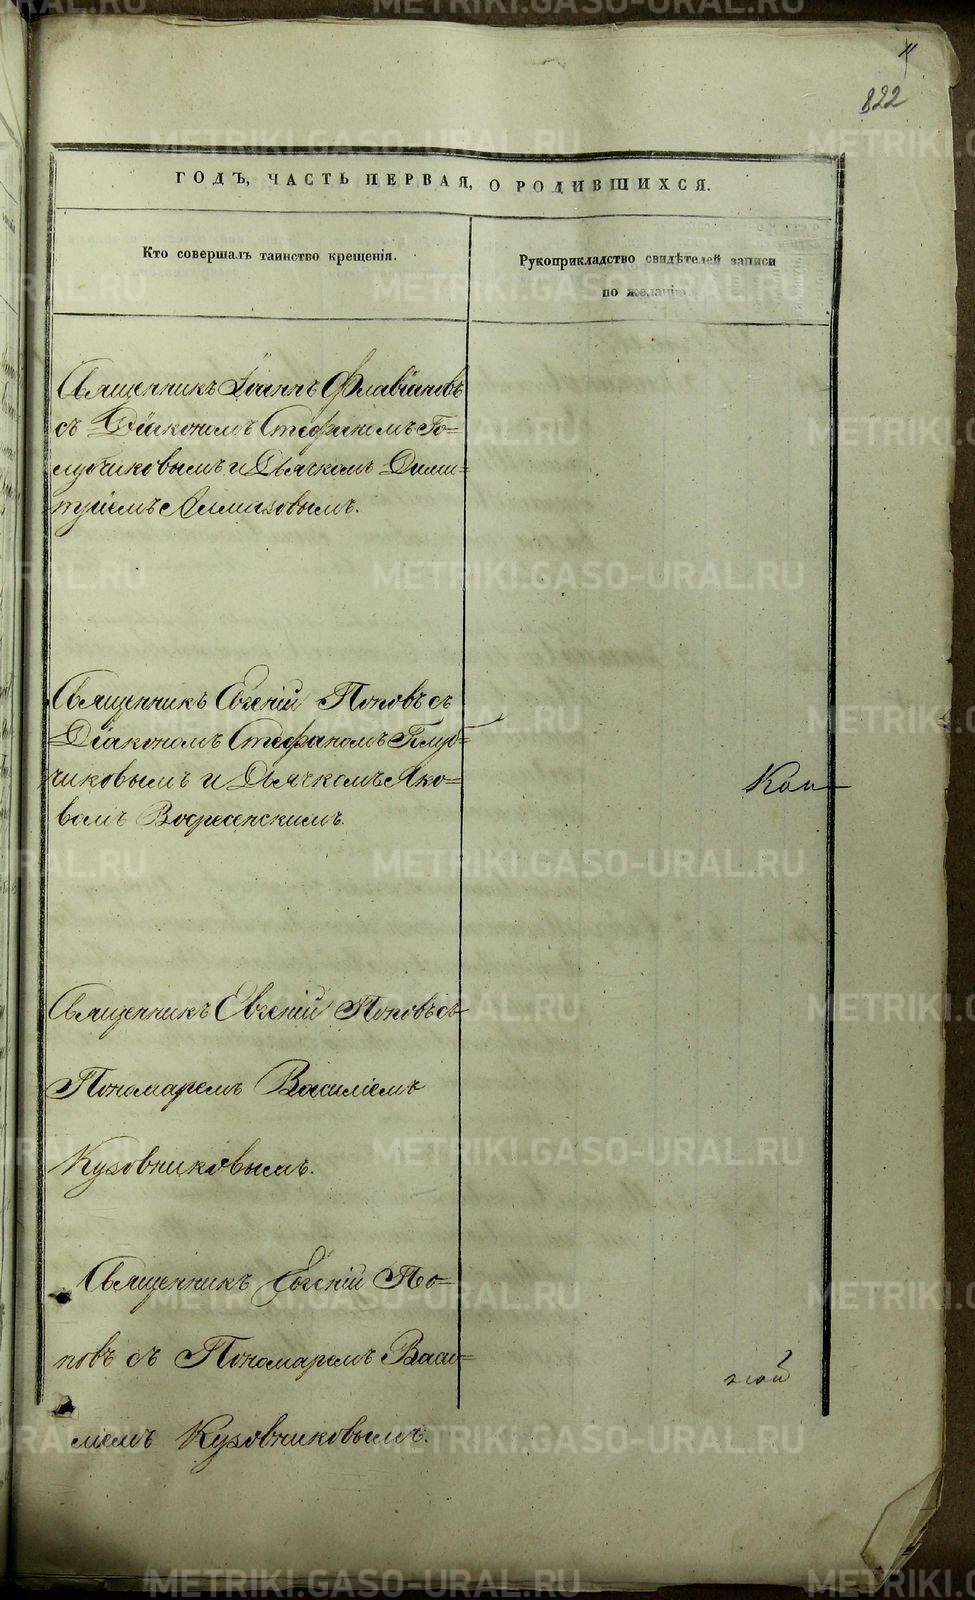 11
822
ГОДЪ, ЧАСТЬ ПЕРВАЯ, О РОДИВШИХСЯ.
Кто совершалъ таинство крещенія.
Рукоприкладство свидѣтелей записи
по желанію.
Священникъ Іоаннъ Флавіановъ
съ Діакономъ Стефаномъ Го-
лубчиковымъ и Дьячкомъ Дими-
тріемъ Алмазовымъ.
Священникъ Евгеній Поповъ съ
Діакономъ Стефаномъ Голуб-
чиковымъ и Дьячкомъ Яко-
вомъ Воскресенскимъ.
Священникъ Евгеній Поповъ съ
Пономаремъ Василіемъ
Кузовниковымъ.
Священникъ Евгеній По-
повъ съ Пономаремъ Васи-
ліемъ Кузовниковымъ.
METRIKI.GASO-URAL.RU